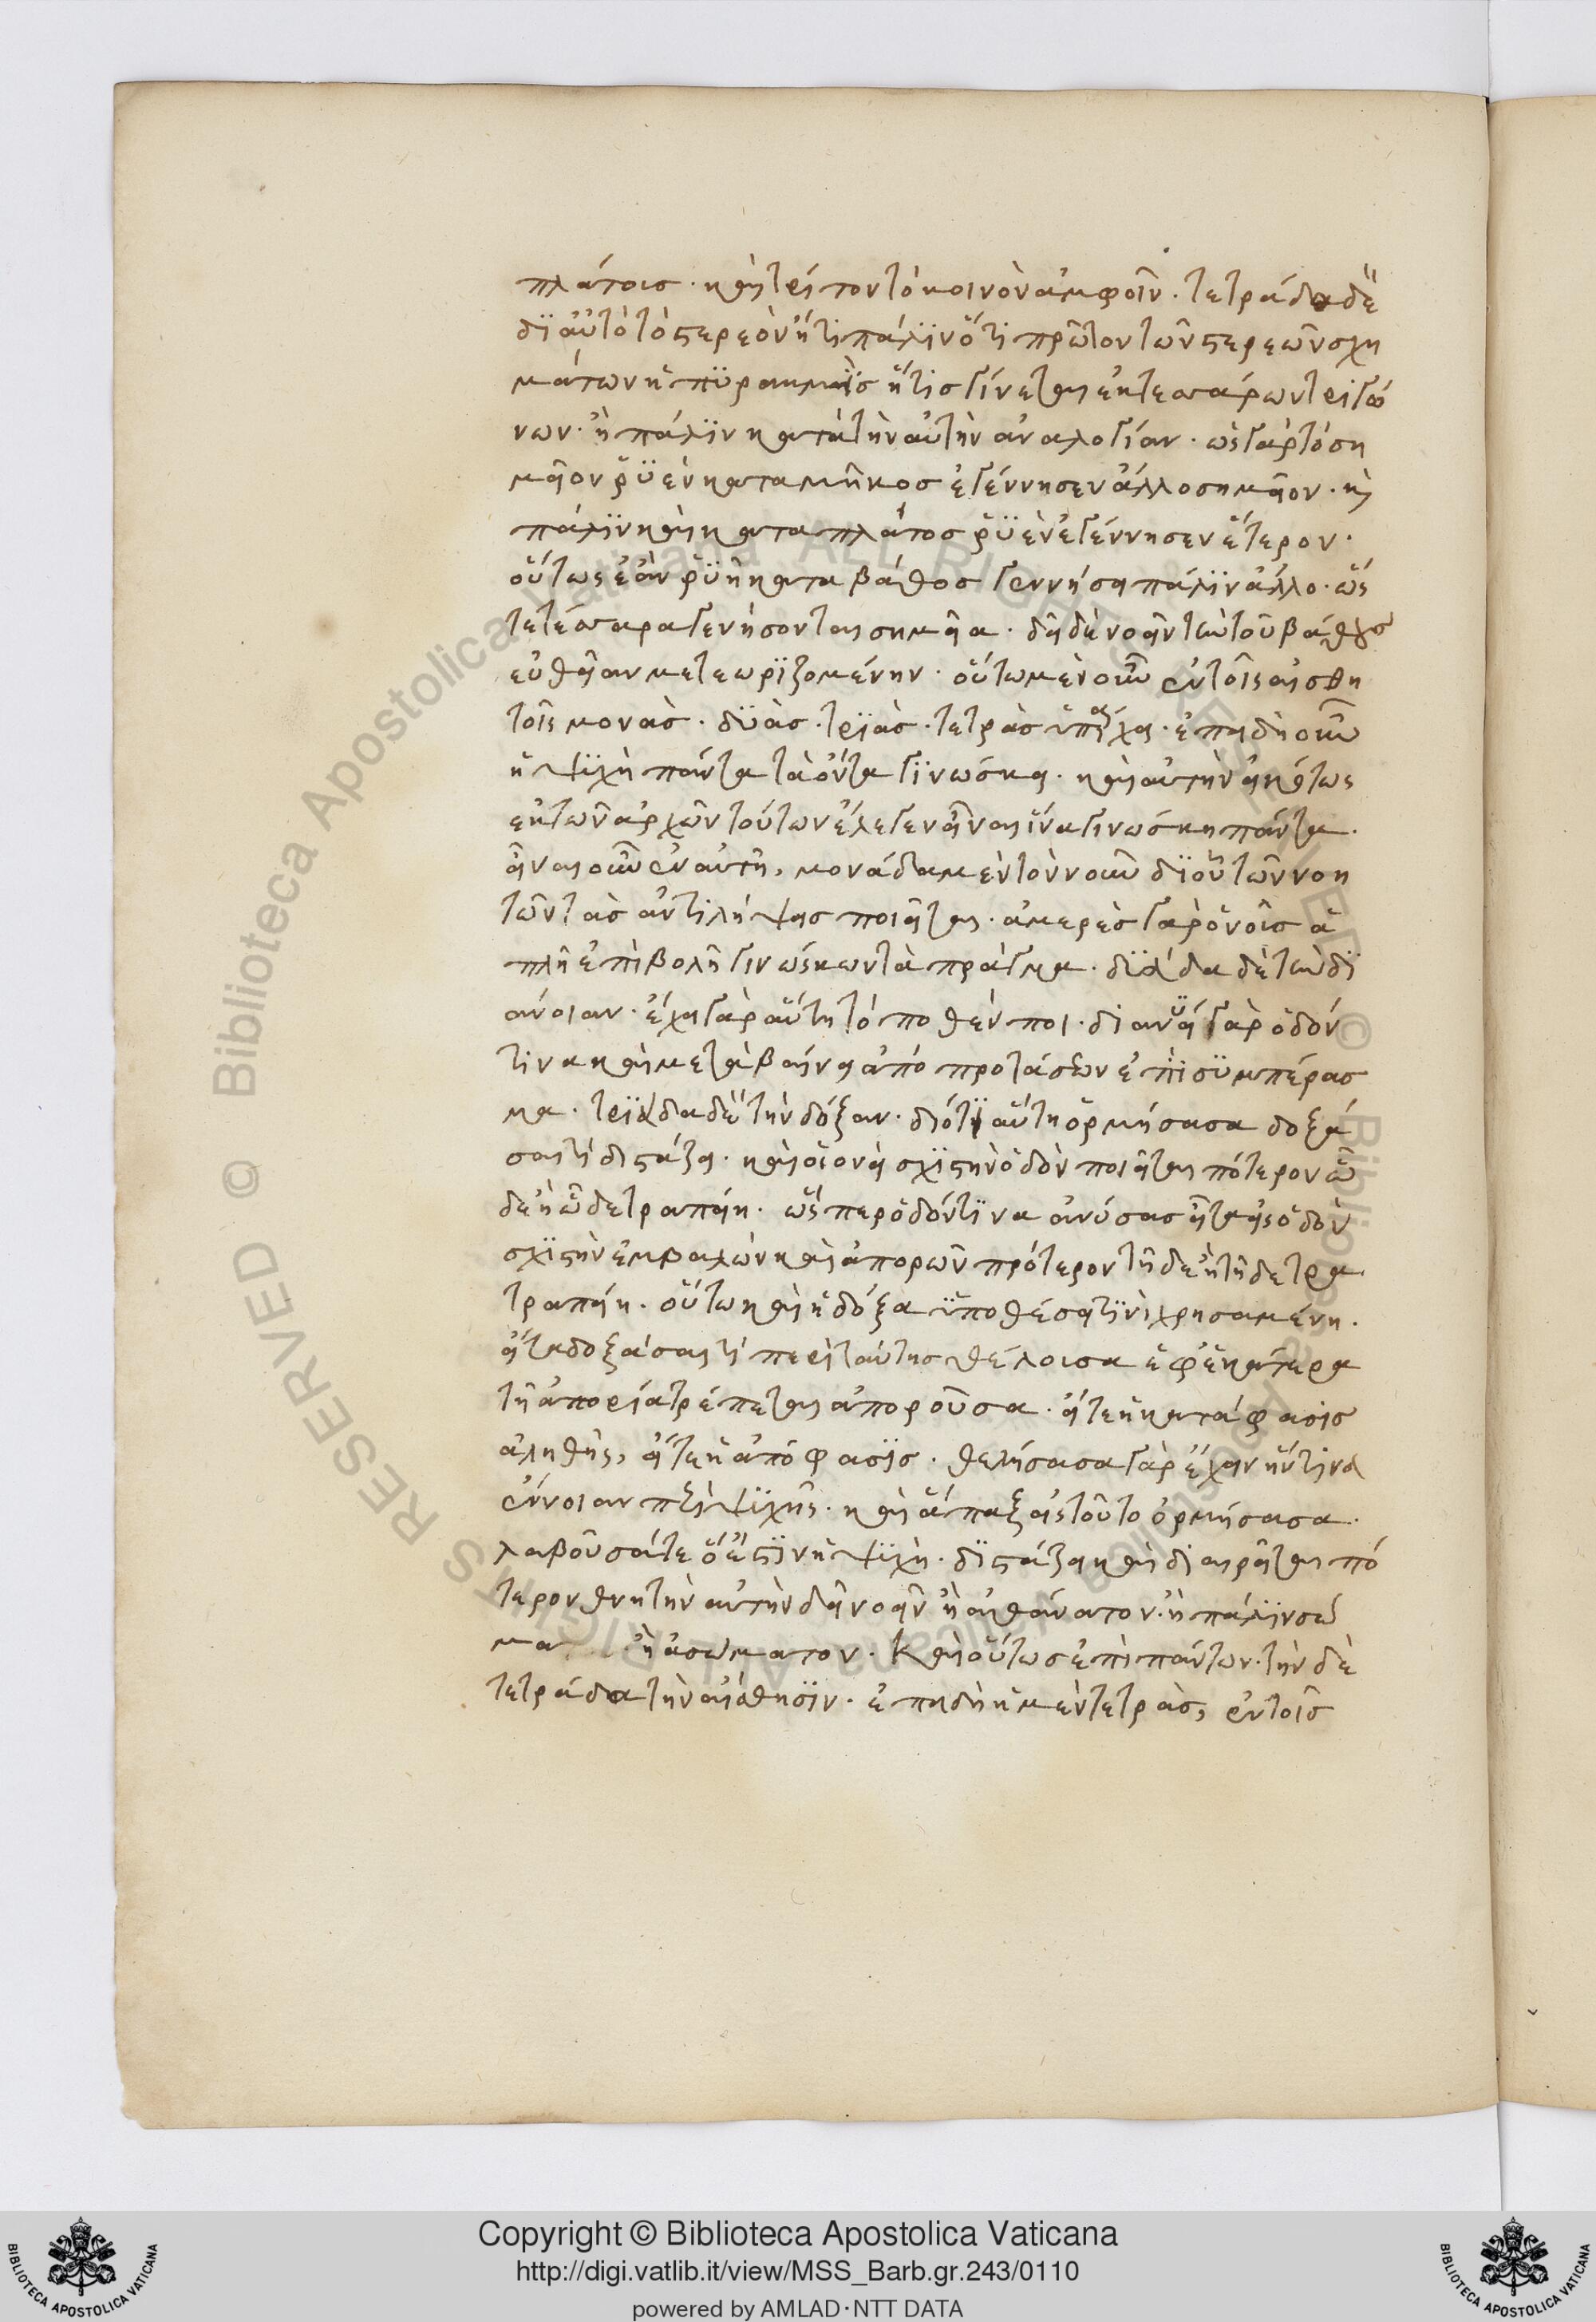 πλάτοις. καὶ τρίτον τὸ κοινὸν ἀμφοῖν. τετράδα δὲ
δϊ αὐτὸ τὸ στερεὸν ἤτι πάλϊν ὅτι πρῶτον τῶν στερεῶν σχη
μάτων ἡ πϋραμμὶς ἥτις γίνεται ἐκ τεσσάρων τριγώ
νων. ἢ πάλϊν κατὰ τὴν αὐτὴν ἀναλογίαν. ὡς γὰρ τὸ ση
μεῖον ῥϋὲν κατα μῆκος ἐγέννησεν ἄλλο σημεῖον. κὶ
πάλϊν καὶ κατα πλάτος ῥϋὲν ἐγέννησεν ἕτερον.
οὕτως ἐὰν ῥϋῆ κατα βάθος γεννήσει πάλϊν ἄλλο. ὥς
τε τέσσαρα γενήσονται σημεῖα. δεῖ δὲ νοεῖν τὴν τοῦ βάθους
εὐθεῖαν μετεωρϊζομένην. οὕτω μὲν οὖν ἐν τοῖς αἰσθη
τοῖς μονὰς. δϋὰς. τρϊὰς. τετρὰς ὑπάρχει. ἐπειδὴ οὖν
ἡ ψϋχὴ πάντα τὰ ὄντα γϊνώσκει. καὶ αὐτὴν εἰκότως
ἐκ τῶν ἀρχῶν τούτων ἔλεγεν εἶναι ἵνα γινώσκη πάντα.
εἶναι οὖν ἐν αὐτῆ, μονάδα μὲν τὸν νοῦν δϊ οὗ τῶν νοη
τῶν τὰς ἀντιλήψεις ποιεῖται. ἀμερὲς γὰρ ὁ νοῦς ἁ
πλῆ ἐπιβολῆ γινώσκων τὰ πράγμα. δϋάδα δὲ τὴν δϊ
άνοιαν. ἔχει γὰρ αὕτη τό ποθέν ποι. διανϋει γὰρ ὁδόν
τινα καὶ μεταβαίνει ἀπὸ προτάσεων ἐπὶ σϋμπέρασ
μα. τρϊάδα δὲ τὴν δόξαν. διότϊ αὕτη ὁρμήσασα δοξά
σαι τὶ διστάζει. καὶ οἱονεὶ σχϊστὴν ὁδὸν ποιεῖται πότερον ὧ
δε ἢ ὧδε τραπείη. ὥσπερ ὁδόν τϊνα ἀνύσας εἶτα εἰς ὁδὸν
σχϊστὴν ἐμβαλὼν καὶ ἀπορῶν πρότερον τῆδε ἢ τῆδε τρα
τραπείη. οὕτω καὶ ἡ δόξα ὑποθέσει τϊνὶ χρησαμένη.
εἶτα δοξάσαι τὶ περὶ ταύτης θέλοισα ἐφ' ἑκάτερα
τῆ ἀπορία τρέπεται ἀποροῦσα. εἴτε ἡ κατάφασις
ἀληθὴς, εἴτε ἡ ἀπόφασϊς. θελήσασα γὰρ ἔχειν ἥντινα
ἔννοιαν περὶ ψϋχῆς. καὶ ἅπαξ εἰς τοῦτο ὁρμήσασα.
λαβοῦσάτε ὅ ἐστϊν ἡ ψϋχὴ. δϊστάζει καὶ διαιρεῖται πό
τερον θνητὴν αὐτὴν δεῖ νοεῖν ἢ ἀθάνατον. ἢ πάλϊν σῶ
μα ἢ ἀσώματον. Καὶ οὕτως ἐπὶ πάντων. τὴν δὲ
τετράδα τὴν αἴσθησϊν. ἐπειδὴ ἡ μὲν τετρὰς, ἐν τοῖς
Copyright © Biblioteca Apostolica Vaticana
http://digi.vatlib.it/view/MSS_Barb.gr.243/0110
powered by AMLAD·NTT DATA